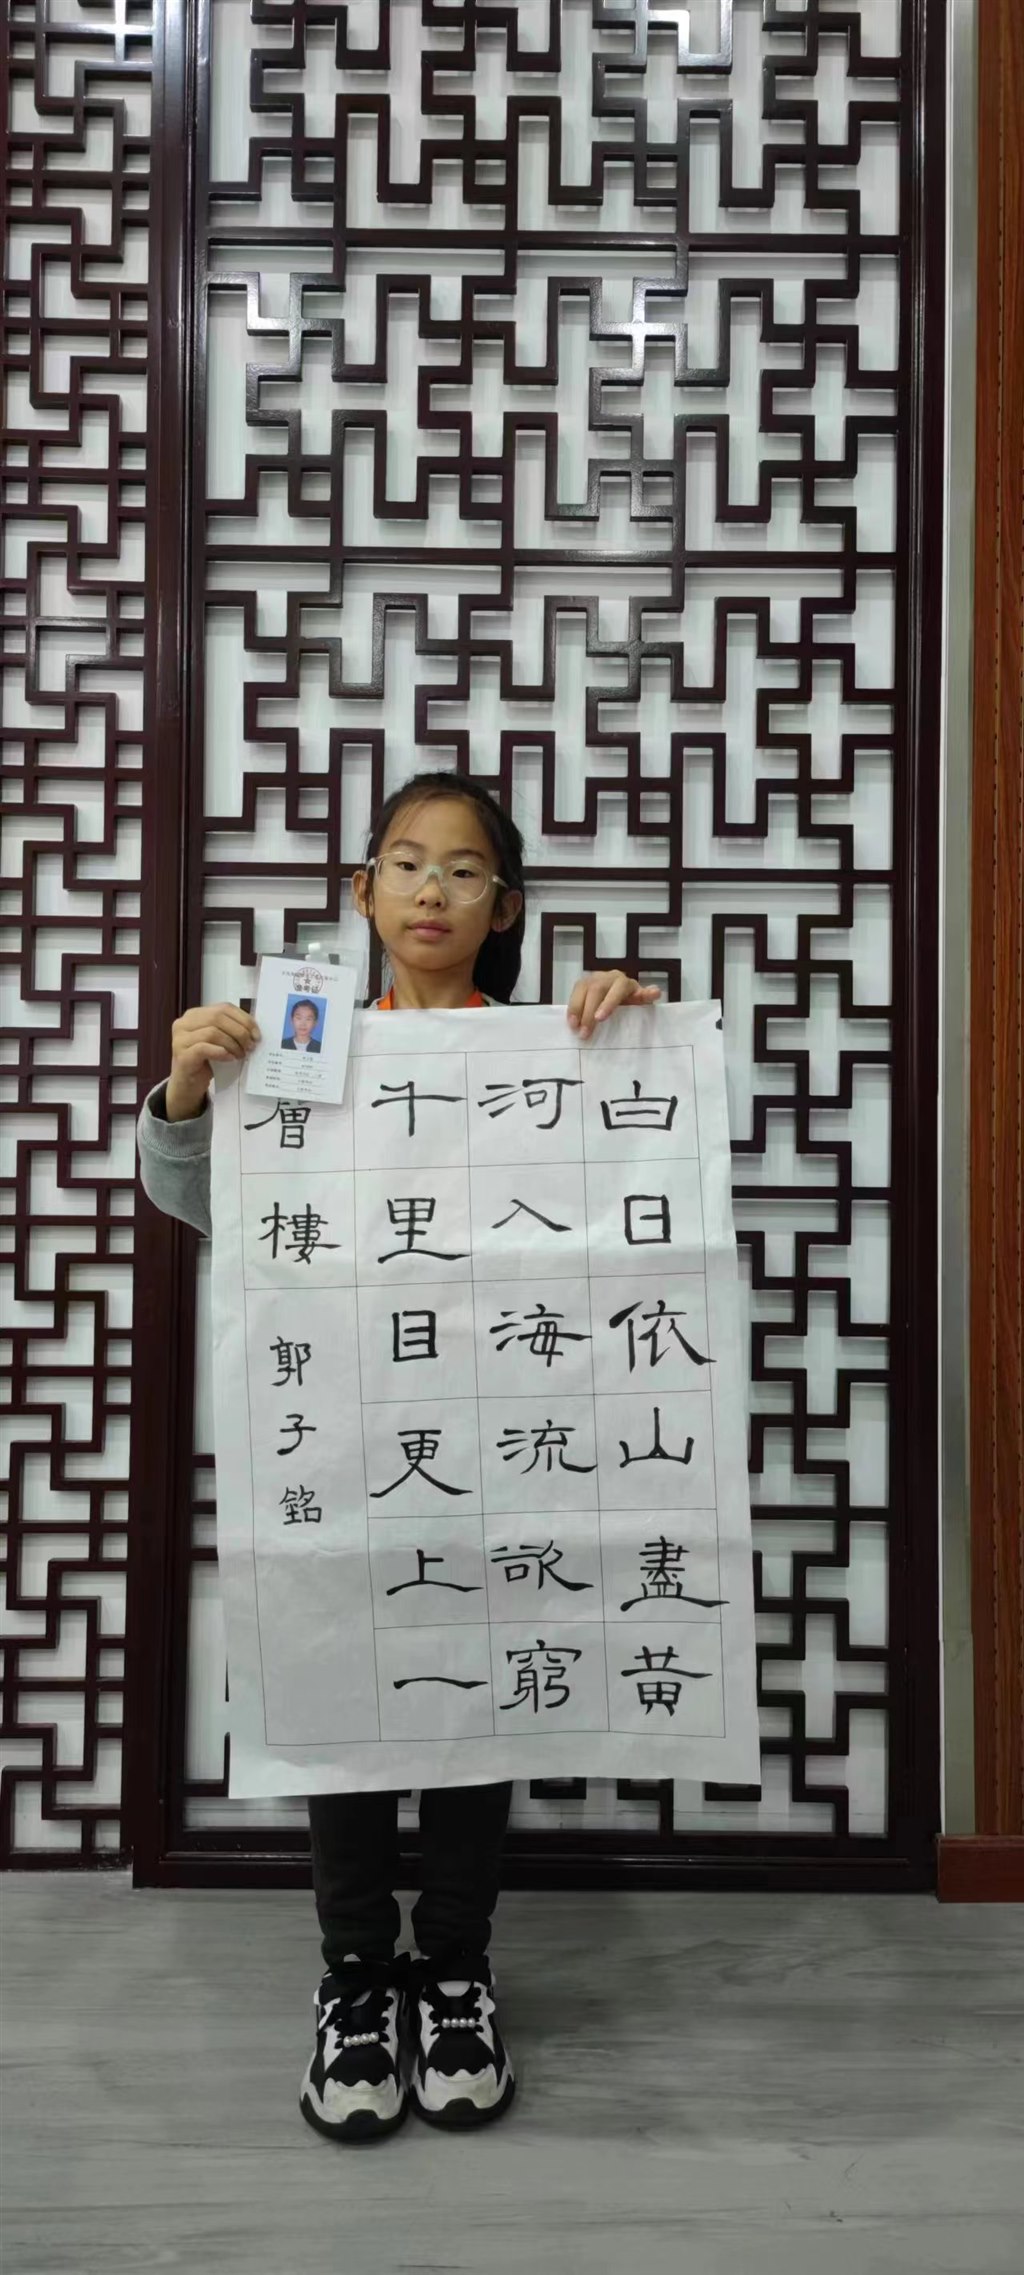 白日依山盡黄
河入海流欲窮
千里目更上一
層樓
郭子銘
准考证